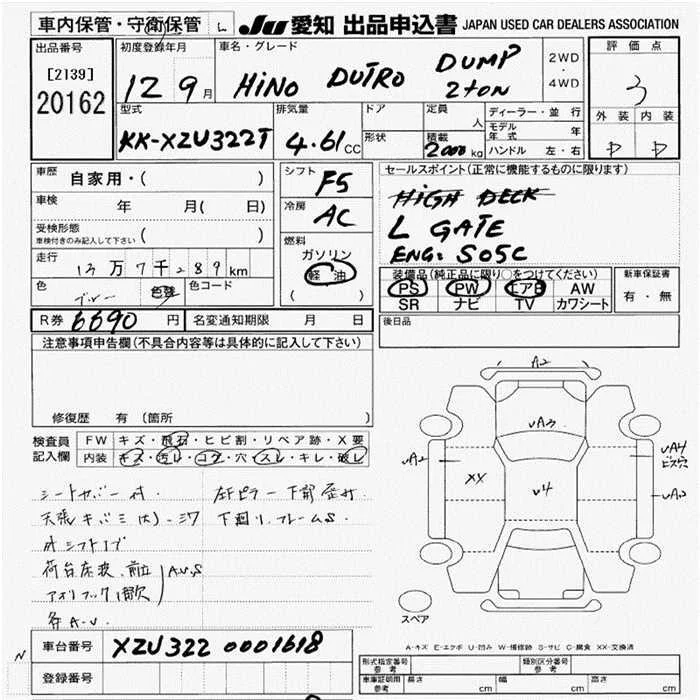 車内保管・守衛保管 L JU 愛知 出品申込書 JAPAN USED CAR DEALERS ASSOCIATION
出品番号 初度登録年月 車名・グレード 2WD・4WD 評価点
[2139]
20162 12 9月 HINO DUTRO DUMP 2ton 3
外装 内装
D D
型式 排気量 ドア 定員 人 ディーラー・並行
KK-XZU322T 4.61CC 形状 積載 2000kg モデル年式 年
ハンドル 左・右
車歴 自家用・( )
シフト F5
セールスポイント(正常に機能するものに限ります)
車検 年 月( 日)
冷房 AC
HIGH DECK
L GATE
ENG: S05C
受検形態 車検付きのみ記入して下さい ( )
燃料 ガソリン 軽油 ( )
走行 13万7千289km
色 ブルー 色替 色コード
装備品(純正品に限り○をつけてください) 新車保証書
PS PW エアB AW 有・無
SR ナビ TV カワシート
R券 6690円 名変通知期限 月 日
後日品
注意事項申告欄(不具合内容等は具体的に記入して下さい)
修復歴 有 (箇所 )
検査員記入欄 FW キズ・飛石・ヒビ割・リペア跡・X要
内装 キズ・汚レ・コゲ・穴・スレ・キレ・破レ
シートカバー付.
下廻り.フレームS.
オシフトノブ
A.U.S
各A-U.
A2
vA3
vA2
XX
v4
vA4
ビス穴
vA3
スペア
A-キズ E-エクボ U-凹み W-補修跡 S-サビ C-腐食 XX-交換済
車台番号 XZU322 0001618
N 登録番号
形式指定番号 参考 類別区分番号 参考
車庫証明用 参考 長さ cm 幅 cm 高さ cm